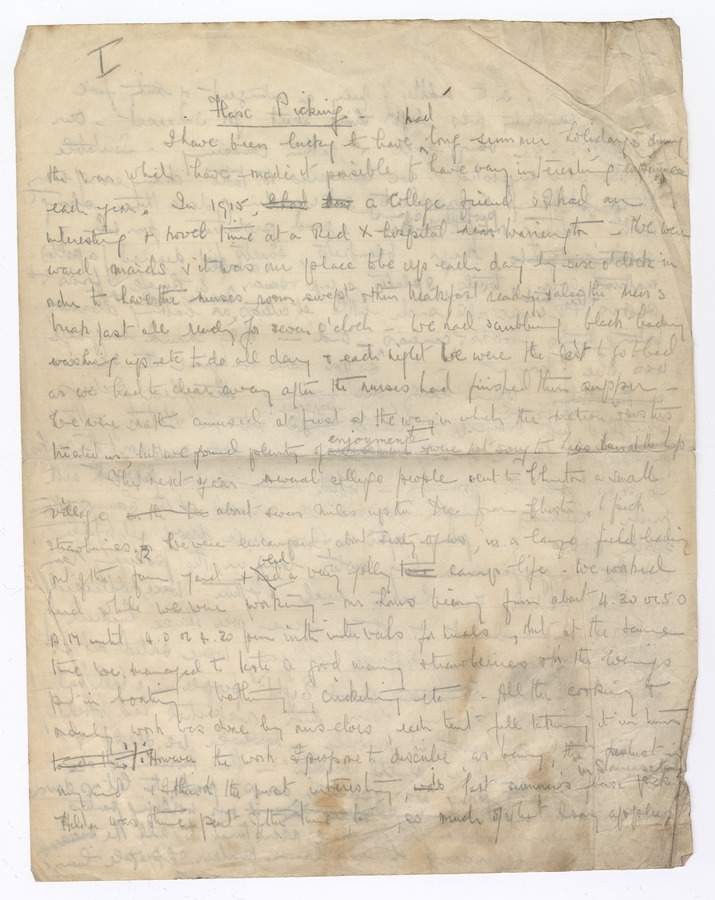 I
Flax Picking. had
I have been lucky to have long summer holidays during
the war which have made it possible to have very interesting experiences
each year. In 1915, a College friend & I had an
interesting & novel time at a Red X hospital near Warrington - We were
ward maids & it was our place to be up each day by six o'clock in
order to have the nurses room swept & their breakfast ready, & also the men's
breakfast all ready for seven o'clock - We had scrubbing black leading
washing up etc to do all day & each night we were the last to go to bed
as we had to clear away after the nurses had finished their supper -
We were rather amused at first at the way in which the matron & sisters
enjoyment
treated us, but we found plenty of & were not sorry to have been at the
The next year several college people went to a small
village about seven miles up the Dee from Chester, to pick
strawberries. We were encamped about sixty of us, in a large field leading
out of the farm yard & a very jolly camp-life - We worked
hard while we were working - our hours being from about 4.30 or 5.0
A.M. until 4.0 or 4.30 p.m. with intervals for meals, but at the same
time we managed to taste a good many strawberries & in the evenings
put in boating, bathing, cricketing etc - All the cooking &
orderly work was done by ourselves, each tent full taking it in turns
However the work I propose to describe as being, the
my mind & I think the most interesting, was last summer's flax picking
in Somerset
spent so much of what I say applies